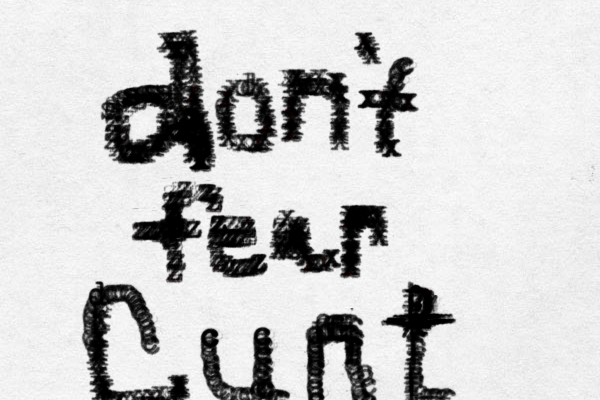 don't
fear
Cunt